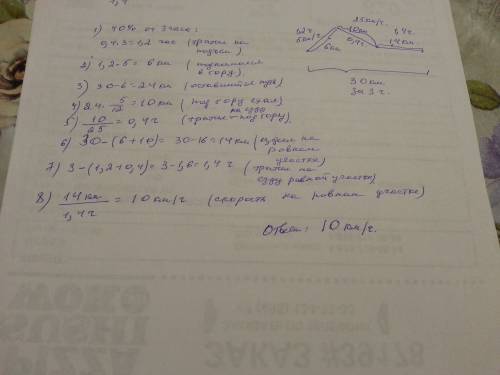 1) 40% от 3 часов:
0,4·3=1,2 час (тратим на подъём)
2) 1,2·5 = 6 км (поднимался в гору)
3) 30-6=24 км (оставшийся путь)
4) 24· 5/12 = 10 км (под гору ехал
5) 10/25 = 0,4 ч (тратим под гору)
6) 30-(6+10)=30-16=14 км (ехал на ровном участке)
7) 3-(1,2+0,4)=3-1,6=1,4 ч (тратим на езду ровной участке)
8) 14 км/1,4 ч = 10 км/ч (скорость на ровном участке)
Ответ: 10 км/ч.
25 км/ч
1,2 ч
5 км/ч
10 км
0,4 ч
6 км
1,4 ч
14 км
30 км
за 3 ч.
WOK
SUSHI
PIZZA
ЗАКАЗ #39178